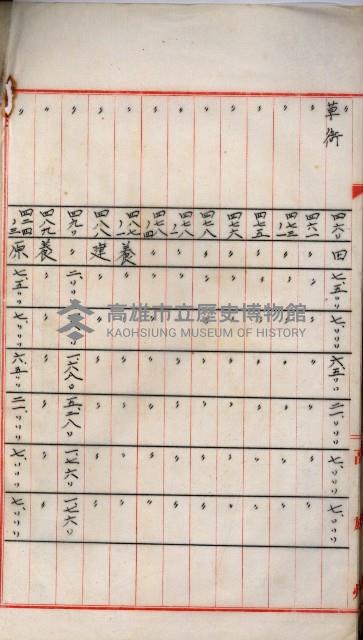 草衙 四六〇 田 七五〇〇 七〇〇〇 六五〇〇 二一〇〇〇 七〇〇〇 七〇〇〇
〃 四六一 〃 〃 〃 〃 〃 〃 〃
〃 〃 〃 〃 〃 〃 〃 〃
〃 四七五 〃 〃 〃 〃 〃 〃 〃
〃 四七六 〃 〃 〃 〃 〃 〃 〃
〃 四七八 〃 〃 〃 〃 〃 〃 〃
〃 〃 〃 〃 〃 〃 〃 〃
〃 〃 〃 〃 〃 〃 〃 〃
〃 養 〃 〃 〃 〃 〃 〃
〃 四八八 建 〃 〃 〃 〃 〃 〃
〃 四九〇 〃 一六八〇 五二八〇 一七六〇 一七六〇
〃 四八九 養 〃 〃 〃 〃 〃 〃
〃 原 七五〇〇 七〇〇〇 六五〇〇 二一〇〇〇 七〇〇〇 七〇〇〇
高雄市立歷史博物館
KAOHSIUNG MUSEUM OF HISTORY